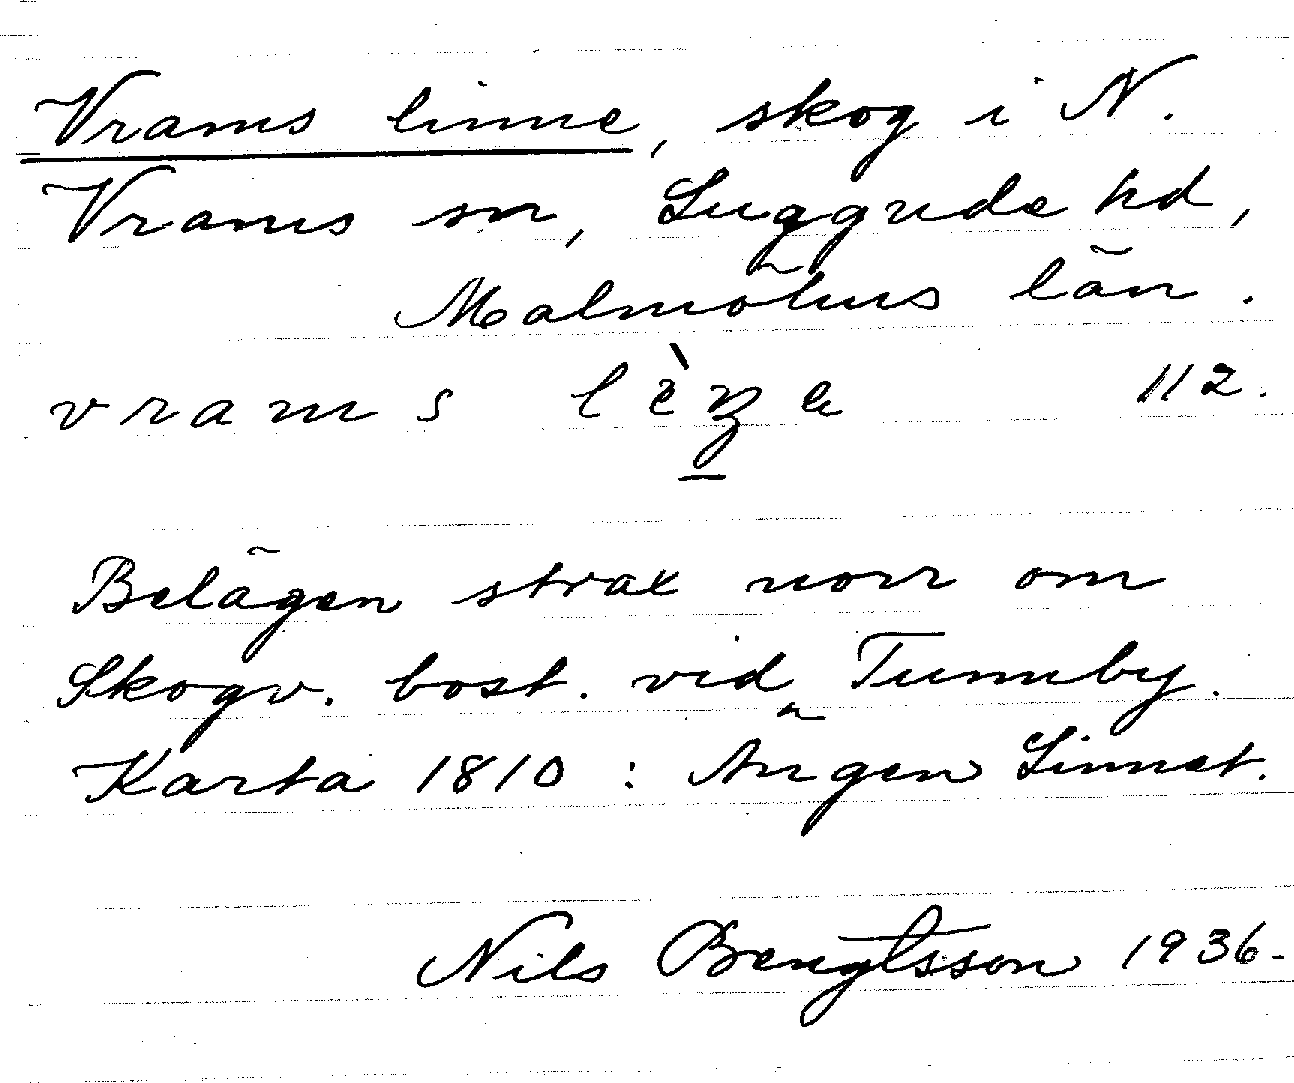 Vrams linne, skog i N.
Vrams sn, Luggude hd,
Malmöhus län.
vrams 112.
Belägen strax norr om
Skogv. bost. vid Tunneby.
Karta 1810: Ängen Linnet.
Nils Bengtsson 1936.